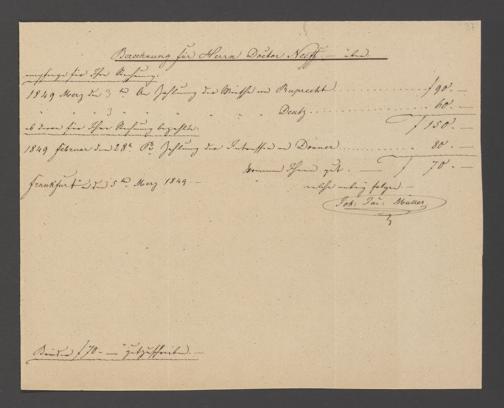 Berechnung für Herrn Doctor Neeff — über
empfange für Ihre Rechnung.
1849 Merz den 3ten An Zahlung der Miethe von Ruprecht f 90. —
" " " 3 " " " " " Deutz 60. —
f 150. —
ab davon für Ihre Rechnung bezahlte
1849 Februar den 28n Pr. Zahlung der Interessen an Donner 80. —
kommen Ihnen gut. f 70. —
welche anbey folgen —
Frankfurt den 5ten Merz 1849 —
Joh: Jac: Müller
f 70. — gutzuschreiben. —